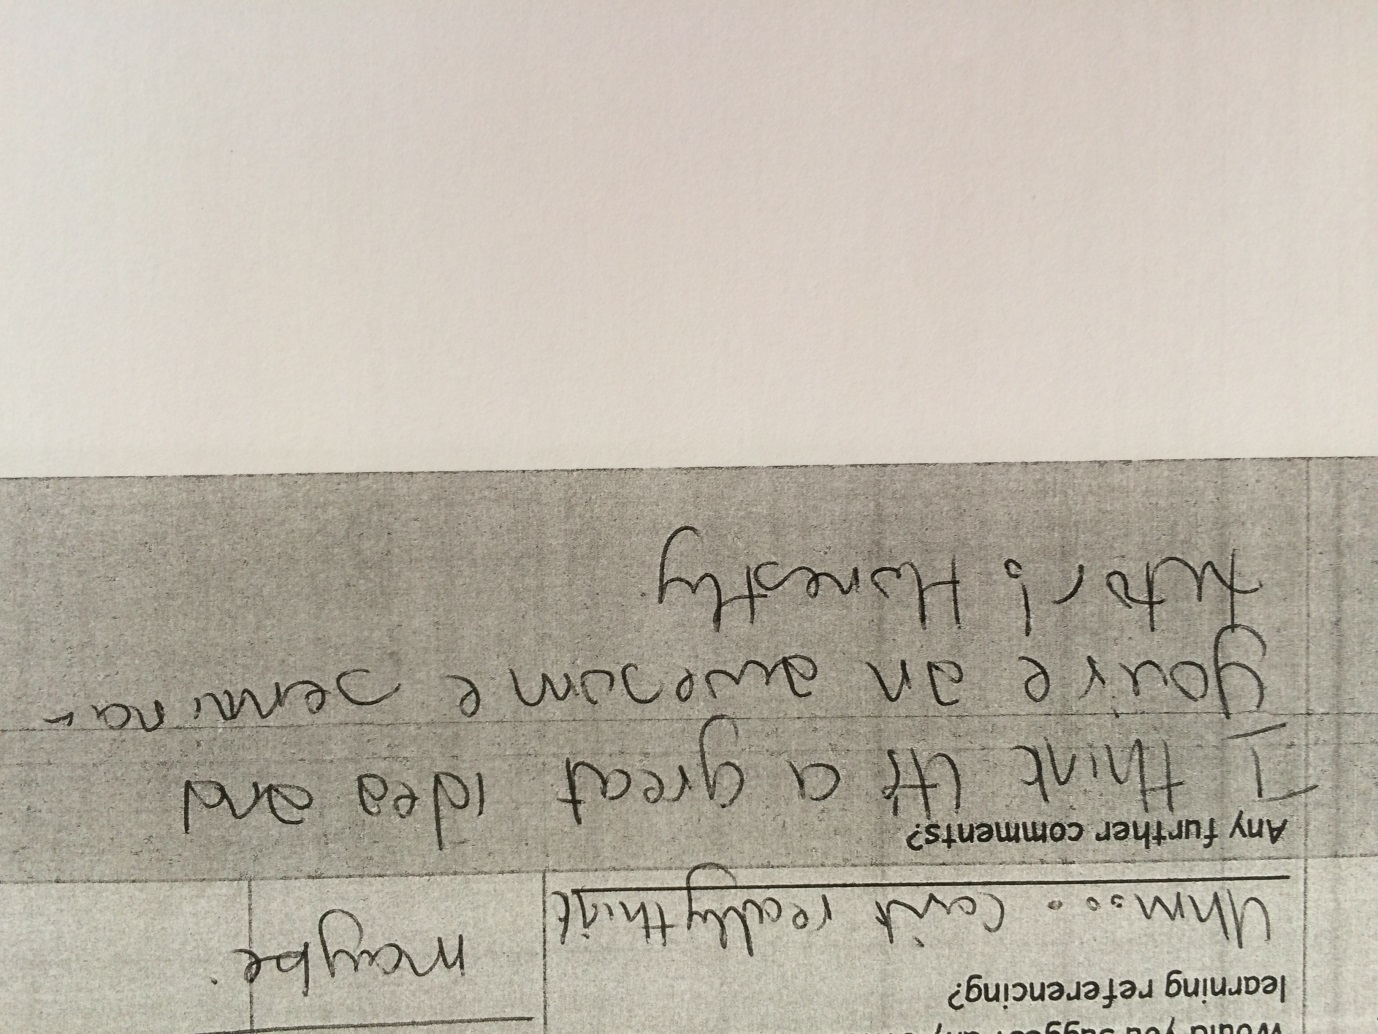 Would you suggest any
learning referencing?
Uhm... Can't really think
maybe.
Any further comments?
I think it's a great idea and
you're an awesome seminar
tutor! Honestly